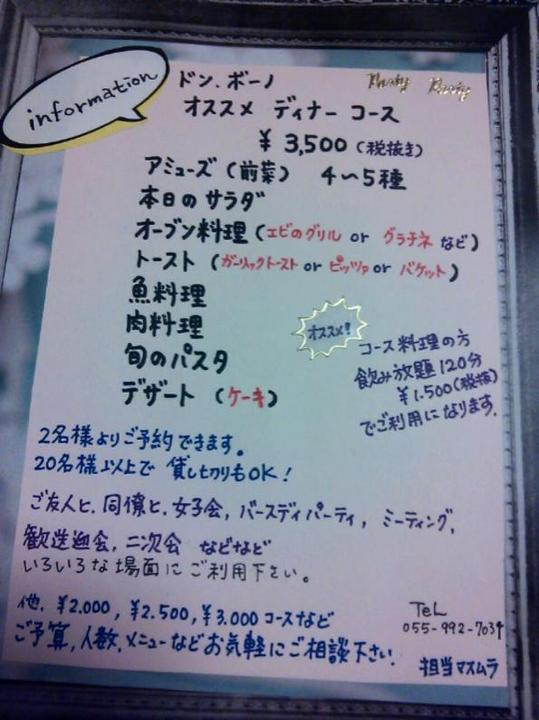 information
ドン.ボーノ
Party Party
オススメ ディナー コース
¥3,500(税抜き)
アミューズ(前菜) 4〜5種
本日のサラダ
オーブン料理(エビのグリル or グラチネ など)
トースト(ガーリックトースト or ピッツァ or バケット)
魚料理
肉料理
旬のパスタ
デザート(ケーキ)
オススメ!
コース料理の方
飲み放題120分
¥1.500(税抜)
でご利用になります.
2名様よりご予約できます。
20名様以上で 貸し切りもOK!
ご友人と.同僚と.女子会,バースディパーティ,ミーティング,
歓送迎会,二次会 などなど
いろいろな場面にご利用下さい。
他.¥2.000,¥2.500,¥3.000コースなど
ご予算,人数,メニューなどお気軽にご相談下さい.
TeL
055-992-7034
担当マスムラ